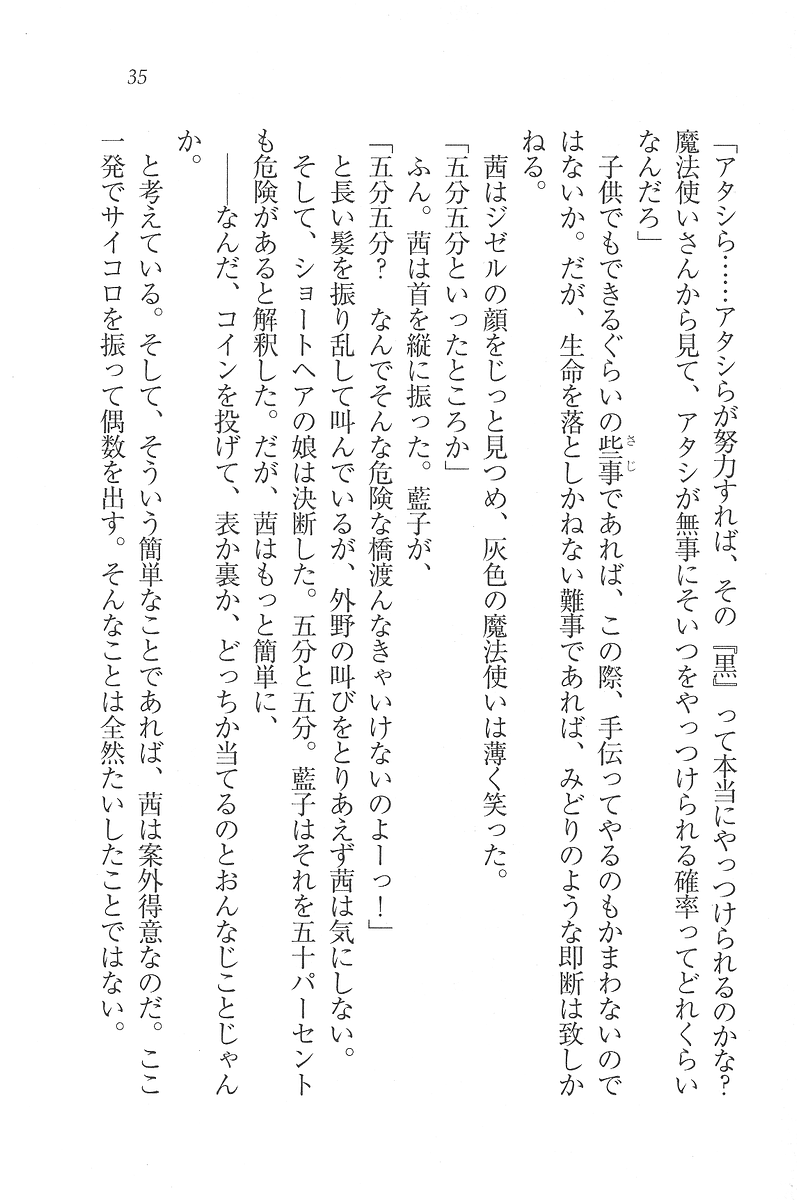 35
「アタシら……アタシらが努力すれば、その『黒』って本当にやっつけられるのかな?
魔法使いさんから見て、アタシが無事にそいつをやっつけられる確率ってどれくらい
なんだろ」
　子供でもできるぐらいの些事であれば、この際、手伝ってやるのもかまわないので
さじ
はないか。だが、生命を落としかねない難事であれば、みどりのような即断は致しか
ねる。
　茜はジゼルの顔をじっと見つめ、灰色の魔法使いは薄く笑った。
「五分五分といったところか」
　ふん。茜は首を縦に振った。藍子が、
「五分五分?　なんでそんな危険な橋渡んなきゃいけないのよーっ!」
　と長い髪を振り乱して叫んでいるが、外野の叫びをとりあえず茜は気にしない。
　そして、ショートヘアの娘は決断した。五分と五分。藍子はそれを五十パーセント
も危険があると解釈した。だが、茜はもっと簡単に、
　――なんだ、コインを投げて、表か裏か、どっちか当てるのとおんなじことじゃん
か。
　と考えている。そして、そういう簡単なことであれば、茜は案外得意なのだ。ここ
一発でサイコロを振って偶数を出す。そんなことは全然たいしたことではない。